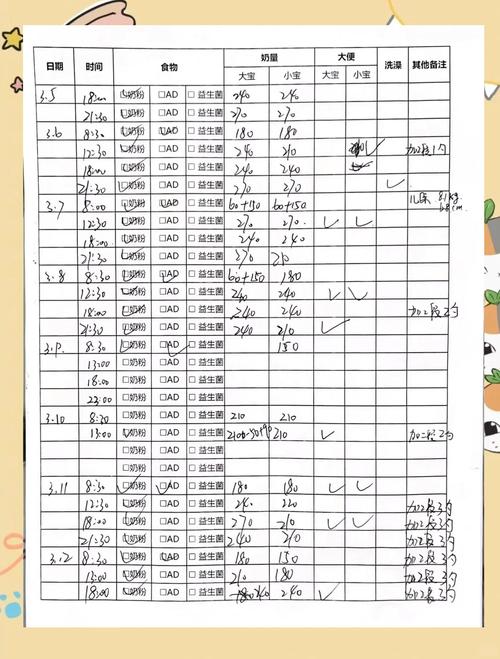 日期 时间 食物 奶量 大便 洗澡 其他备注
大宝 小宝 大宝 小宝
3.5 18:00 ☑奶粉 □AD □益生菌 240 240
21:30 □奶粉 □AD □益生菌 270 270
3.6 8:30 □奶粉 □AD □益生菌 180 180
12:30 □奶粉 □AD □益生菌 240 210 ✓
18:00 □奶粉 □AD □益生菌 240 240
21:30 □奶粉 □AD □益生菌 270 270 ✓
3.7 8:00 □奶粉 □AD □益生菌 60+150 60+150 儿保 8.1kg 68cm
12:30 □奶粉 □AD □益生菌 270 270 ✓ ✓
18:00 □奶粉 □AD □益生菌 240 240
21:30 □奶粉 □AD □益生菌 270 210
3.8 8:30 □奶粉 □AD □益生菌 60+150 180
12:30 □奶粉 □AD □益生菌 240 240 ✓ ✓
18:00 □奶粉 □AD □益生菌 240 240 加2段2勺
21:30 □奶粉 □AD □益生菌 240 210 ✓
3.9 8:30 □奶粉 □AD □益生菌 150
13:00 □奶粉 □AD □益生菌
18:00 □奶粉 □AD □益生菌
23:00 □奶粉 □AD □益生菌
3.10 8:30 □奶粉 □AD □益生菌 210 210
13:00 □奶粉 □AD □益生菌 210 ✓ 加二段2勺
□奶粉 □AD □益生菌
□奶粉 □AD □益生菌
3.11 8:30 □奶粉 □AD □益生菌 180 180 ✓
12:30 □奶粉 □AD □益生菌 240 220 加2段3勺
18:00 □奶粉 □AD □益生菌 270 210 ✓ ✓ 加2段3勺
21:30 □奶粉 □AD □益生菌 240 210 加2段3勺
3.12 8:30 □奶粉 □AD □益生菌 180 150 加2段3勺
13:00 □奶粉 □AD □益生菌 210 180 加2段3勺
18:00 □奶粉 □AD □益生菌 240 240 ✓ 加2段3勺